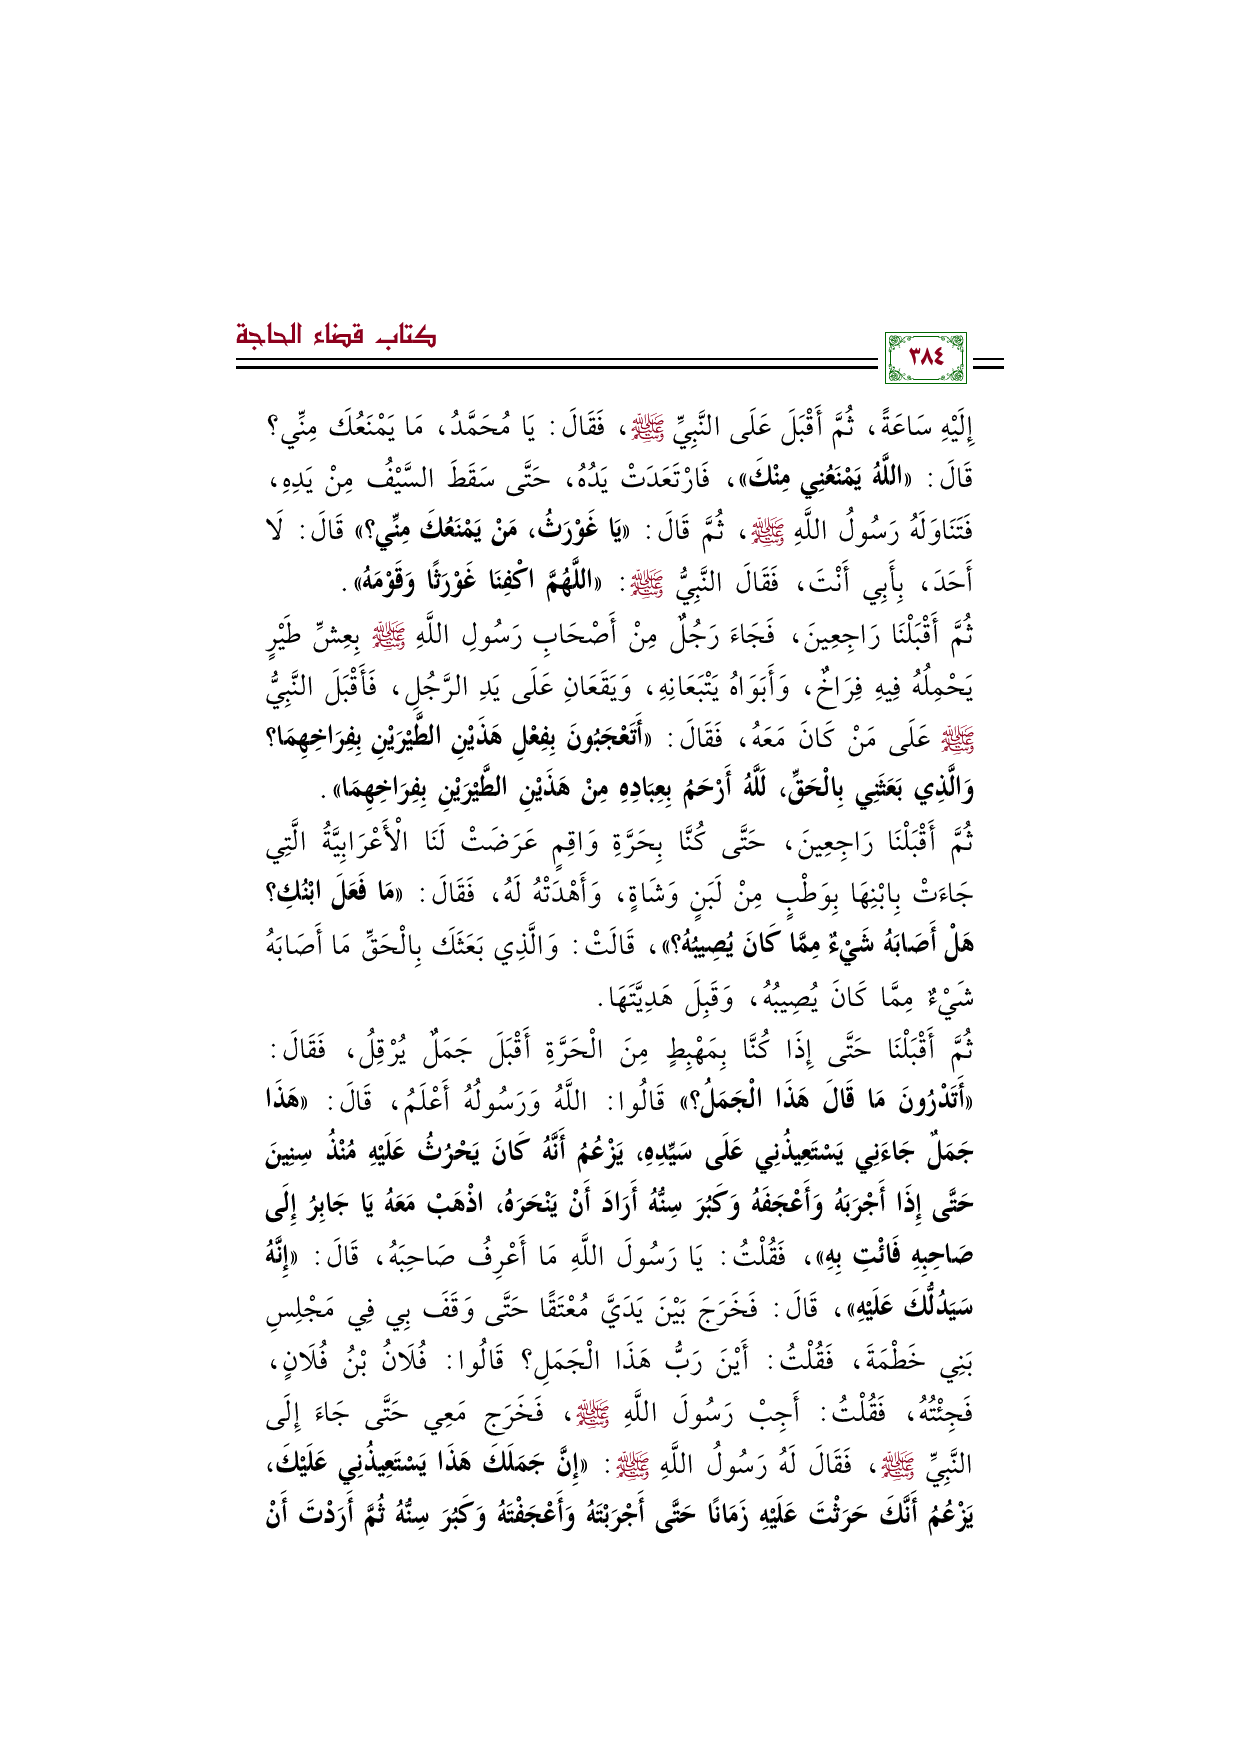 كتاب قضاء الحاجة
٣٨٤
إِلَيْهِ سَاعَةً، ثُمَّ أَقْبَلَ عَلَى النَّبِيِّ ﷺ، فَقَالَ: يَا مُحَمَّدُ، مَا يَمْنَعُكَ مِنِّي؟
قَالَ: «اللَّهُ يَمْنَعُنِي مِنْكَ»، فَارْتَعَدَتْ يَدُهُ، حَتَّى سَقَطَ السَّيْفُ مِنْ يَدِهِ،
فَتَنَاوَلَهُ رَسُولُ اللَّهِ ﷺ، ثُمَّ قَالَ: «يَا غَوْرَثُ، مَنْ يَمْنَعُكَ مِنِّي؟» قَالَ: لَا
أَحَدَ، بِأَبِي أَنْتَ، فَقَالَ النَّبِيُّ ﷺ: «اللَّهُمَّ اكْفِنَا غَوْرَثًا وَقَوْمَهُ».
ثُمَّ أَقْبَلْنَا رَاجِعِينَ، فَجَاءَ رَجُلٌ مِنْ أَصْحَابِ رَسُولِ اللَّهِ ﷺ بِعِشِّ طَيْرٍ
يَحْمِلُهُ فِيهِ فِرَاخٌ، وَأَبَوَاهُ يَتْبَعَانِهِ، وَيَقَعَانِ عَلَى يَدِ الرَّجُلِ، فَأَقْبَلَ النَّبِيُّ
ﷺ عَلَى مَنْ كَانَ مَعَهُ، فَقَالَ: «أَتَعْجَبُونَ بِفِعْلِ هَذَيْنِ الطَّيْرَيْنِ بِفِرَاخِهِمَا؟
وَالَّذِي بَعَثَنِي بِالْحَقِّ، لَلَّهُ أَرْحَمُ بِعِبَادِهِ مِنْ هَذَيْنِ الطَّيْرَيْنِ بِفِرَاخِهِمَا».
ثُمَّ أَقْبَلْنَا رَاجِعِينَ، حَتَّى كُنَّا بِحَرَّةِ وَاقِمٍ عَرَضَتْ لَنَا الْأَعْرَابِيَّةُ الَّتِي
جَاءَتْ بِابْنِهَا بِوَطْبٍ مِنْ لَبَنٍ وَشَاةٍ، وَأَهْدَتْهُ لَهُ، فَقَالَ: «مَا فَعَلَ ابْنُكِ؟
هَلْ أَصَابَهُ شَيْءٌ مِمَّا كَانَ يُصِيبُهُ؟»، قَالَتْ: وَالَّذِي بَعَثَكَ بِالْحَقِّ مَا أَصَابَهُ
شَيْءٌ مِمَّا كَانَ يُصِيبُهُ، وَقَبِلَ هَدِيَّتَهَا.
ثُمَّ أَقْبَلْنَا حَتَّى إِذَا كُنَّا بِمَهْبِطٍ مِنَ الْحَرَّةِ أَقْبَلَ جَمَلٌ يُرْقِلُ، فَقَالَ:
«أَتَدْرُونَ مَا قَالَ هَذَا الْجَمَلُ؟» قَالُوا: اللَّهُ وَرَسُولُهُ أَعْلَمُ، قَالَ: «هَذَا
جَمَلٌ جَاءَنِي يَسْتَعِيذُنِي عَلَى سَيِّدِهِ، يَزْعُمُ أَنَّهُ كَانَ يَحْرُثُ عَلَيْهِ مُنْذُ سِنِينَ
حَتَّى إِذَا أَجْرَبَهُ وَأَعْجَفَهُ وَكَبُرَ سِنُّهُ أَرَادَ أَنْ يَنْحَرَهُ، اذْهَبْ مَعَهُ يَا جَابِرُ إِلَى
صَاحِبِهِ فَائْتِ بِهِ»، فَقُلْتُ: يَا رَسُولَ اللَّهِ مَا أَعْرِفُ صَاحِبَهُ، قَالَ: «إِنَّهُ
سَيَدُلُّكَ عَلَيْهِ»، قَالَ: فَخَرَجَ بَيْنَ يَدَيَّ مُعْتَقًا حَتَّى وَقَفَ بِي فِي مَجْلِسِ
بَنِي خَطْمَةَ، فَقُلْتُ: أَيْنَ رَبُّ هَذَا الْجَمَلِ؟ قَالُوا: فُلَانُ بْنُ فُلَانٍ،
فَجِئْتُهُ، فَقُلْتُ: أَجِبْ رَسُولَ اللَّهِ ﷺ، فَخَرَج مَعِي حَتَّى جَاءَ إِلَى
النَّبِيِّ ﷺ، فَقَالَ لَهُ رَسُولُ اللَّهِ ﷺ: «إِنَّ جَمَلَكَ هَذَا يَسْتَعِيذُنِي عَلَيْكَ،
يَزْعُمُ أَنَّكَ حَرَثْتَ عَلَيْهِ زَمَانًا حَتَّى أَجْرَبْتَهُ وَأَعْجَفْتَهُ وَكَبُرَ سِنُّهُ ثُمَّ أَرَدْتَ أَنْ